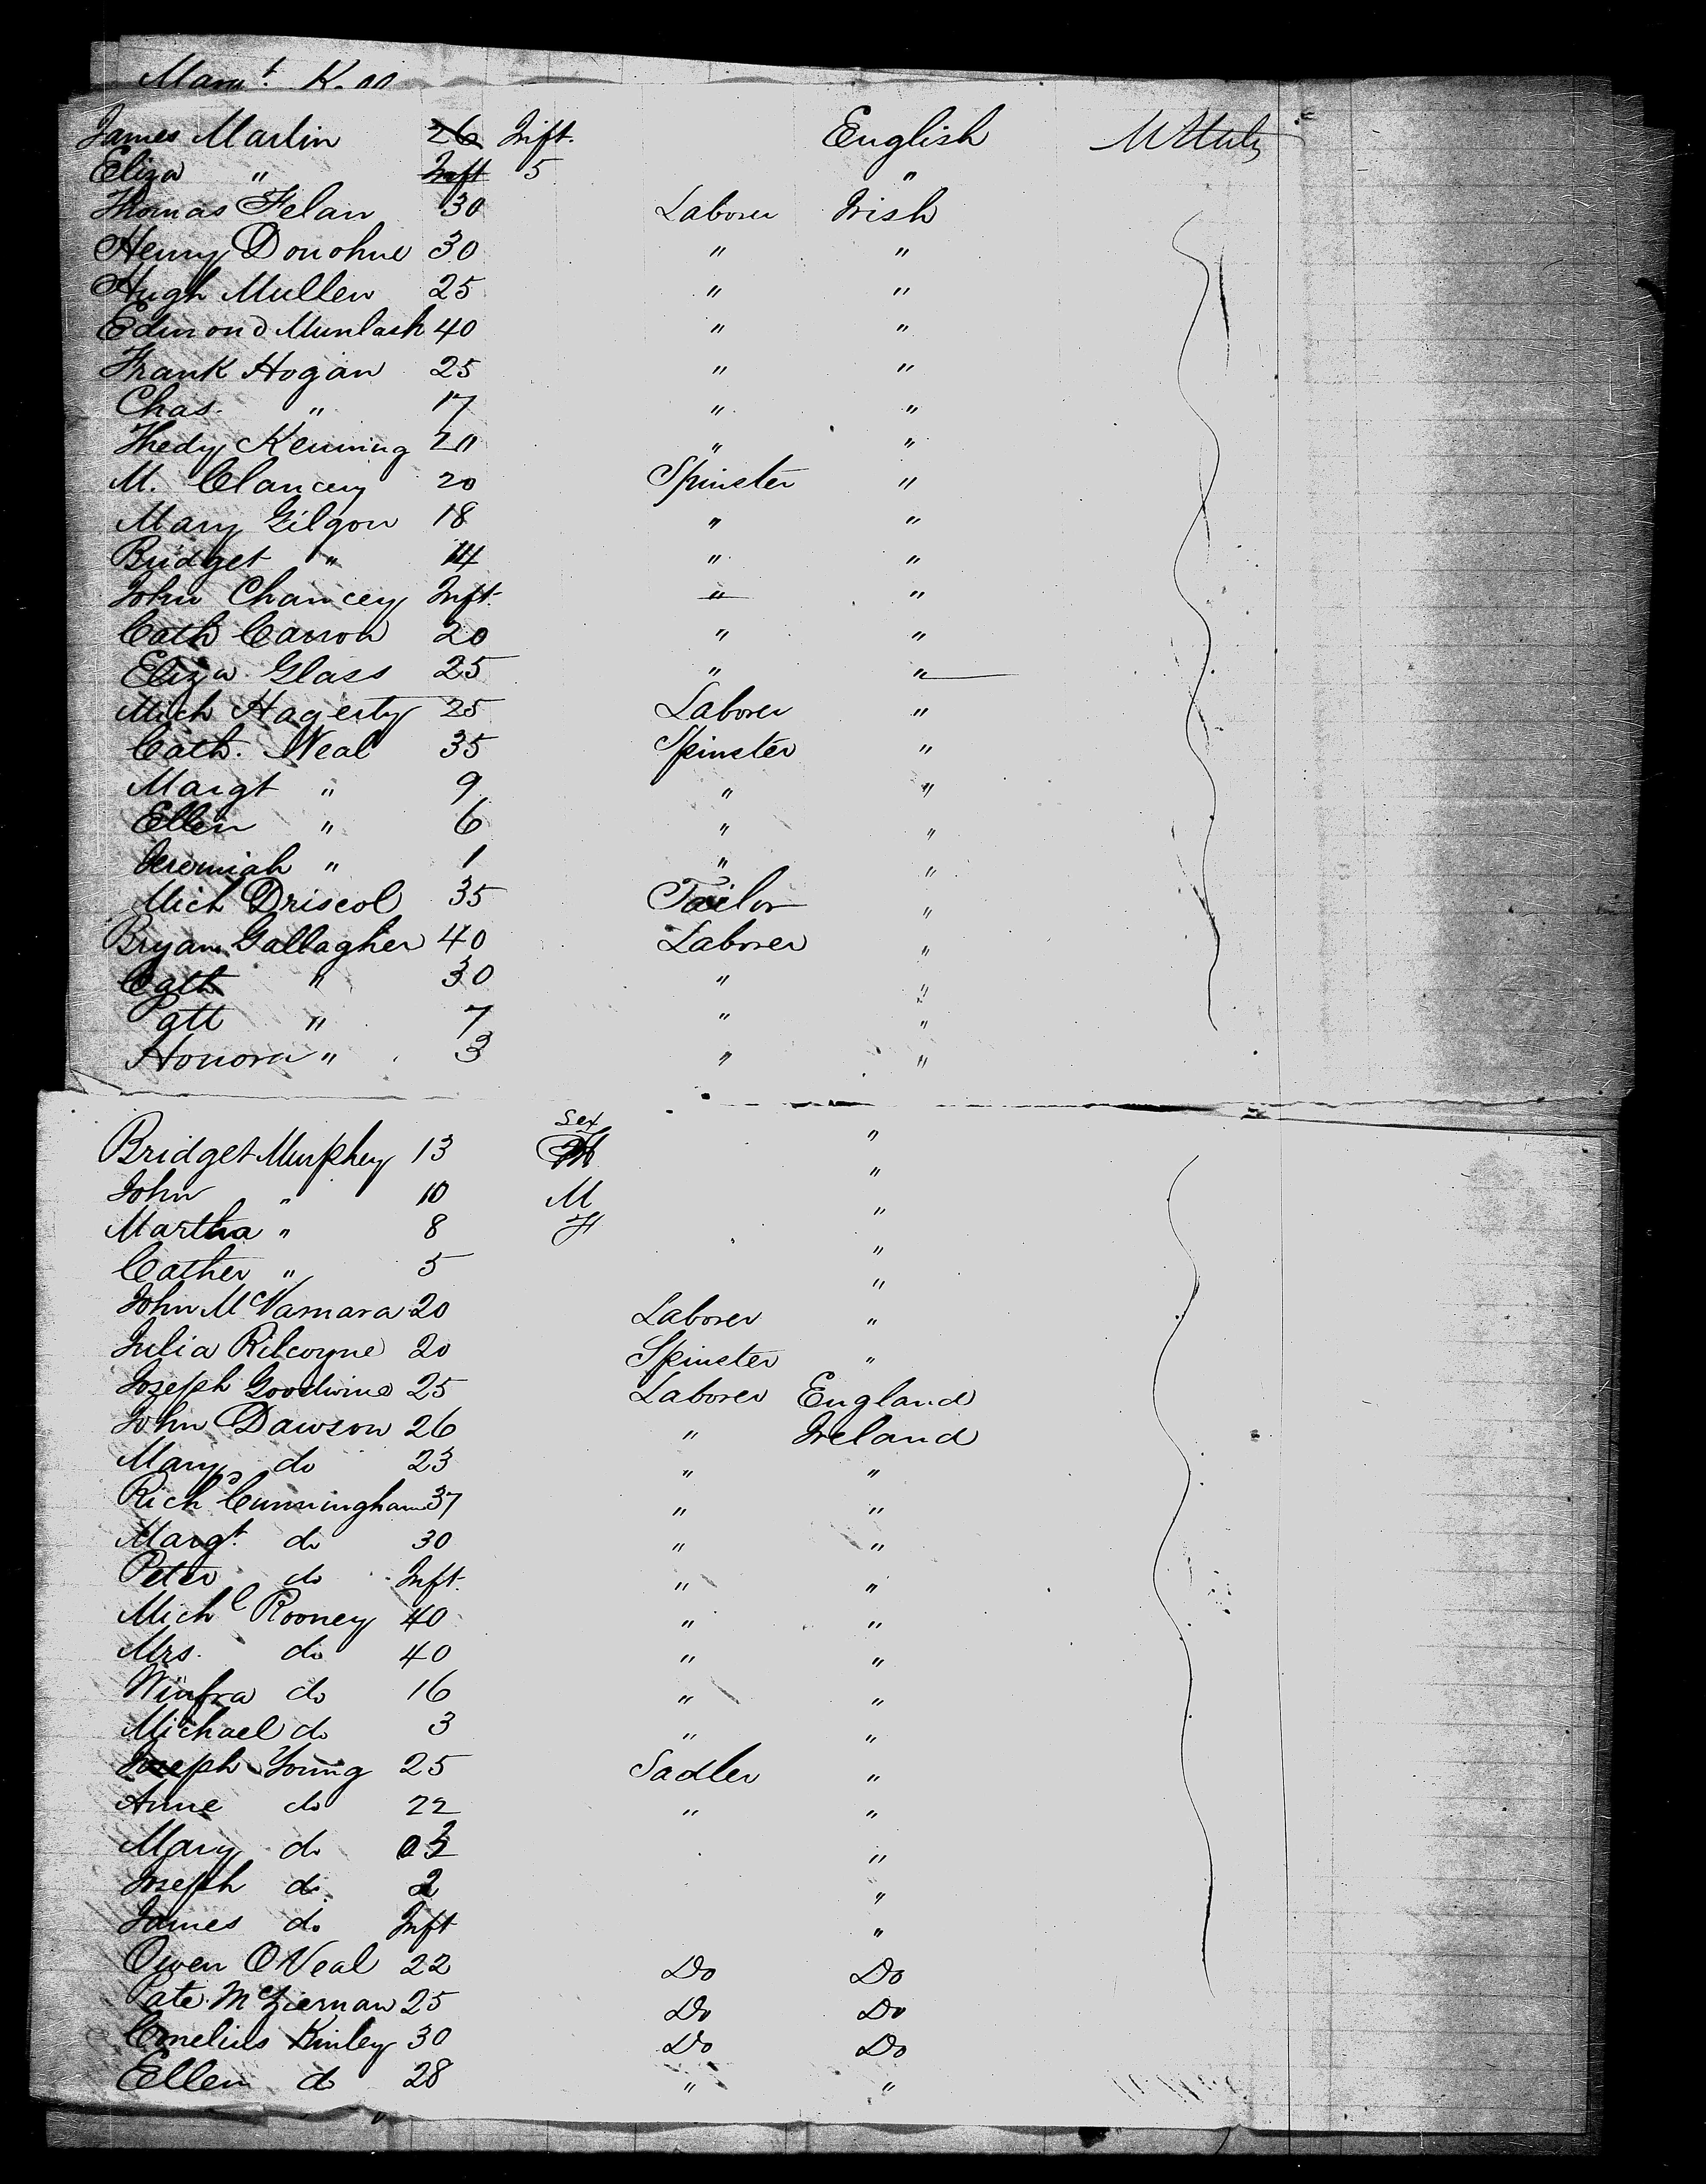 Margt
James Martin 26 Inft. English
Eliza " Inft 5 "
Thomas Felan 30 Laborer Irish
Henry Donohue 30 " "
Hugh Mullen 25 " "
Edmond Munlash 40 " "
Frank Hogan 25 " "
Chas. " 17 " "
Thedy Kenning 20 " "
M. Clancey 20 Spinster "
Mary Gilgon 18 " "
Bridget " 14 " "
John Chancey Inft. " "
Cath Carron 20 " "
Eliza Glass 25 " "
Mich Hagerty 25 Laborer "
Cath. Neal 35 Spinster "
Margt " 9 " "
Ellen " 6 " "
Jeremiah " 1 " "
Mich Driscol 35 Tailor "
Bryan Gallagher 40 Laborer "
Cath " 30 " "
Patt " 7 " "
Honora " 3 " "
Sex "
Bridget Murphey 13 "
John " 10 M "
Martha " 8 F "
Cather " 5 "
John McNamara 20 Laborer "
Julia Kilcoyne 20 Spinster "
Joseph Goodwine 25 Laborer England
John Dawson 26 " Ireland
Mary do 23 " "
Richd Cunningham 37 " "
Margt. do 30 " "
Peter do Inft. " "
Michl Rooney 40 " "
Mrs. do 40 " "
Winfra do 16 " "
Michael do 3 " "
Joseph Young 25 Sadler "
Anne do 22 " "
Mary do "
Joseph do. 2 "
James do Inft "
Owen ONeal 22 Do Do
Pate McTiernan 25 Do Do
Cornelius Kinley 30 Do Do
Ellen do 28 " "